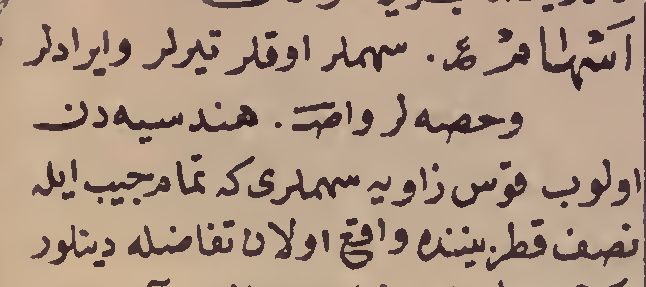 اسهام ع. سهملر اوقلر تیرلر و ایرادلر
و حصه لر واص. هندسیه دن
اولوب قوس زاویه سهملری که تمام جیب ایله
نصف قطر بیننده واقع اولان تفاضله دینلور